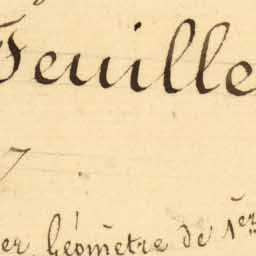 Feuille
7
er, Géomètre de 1er